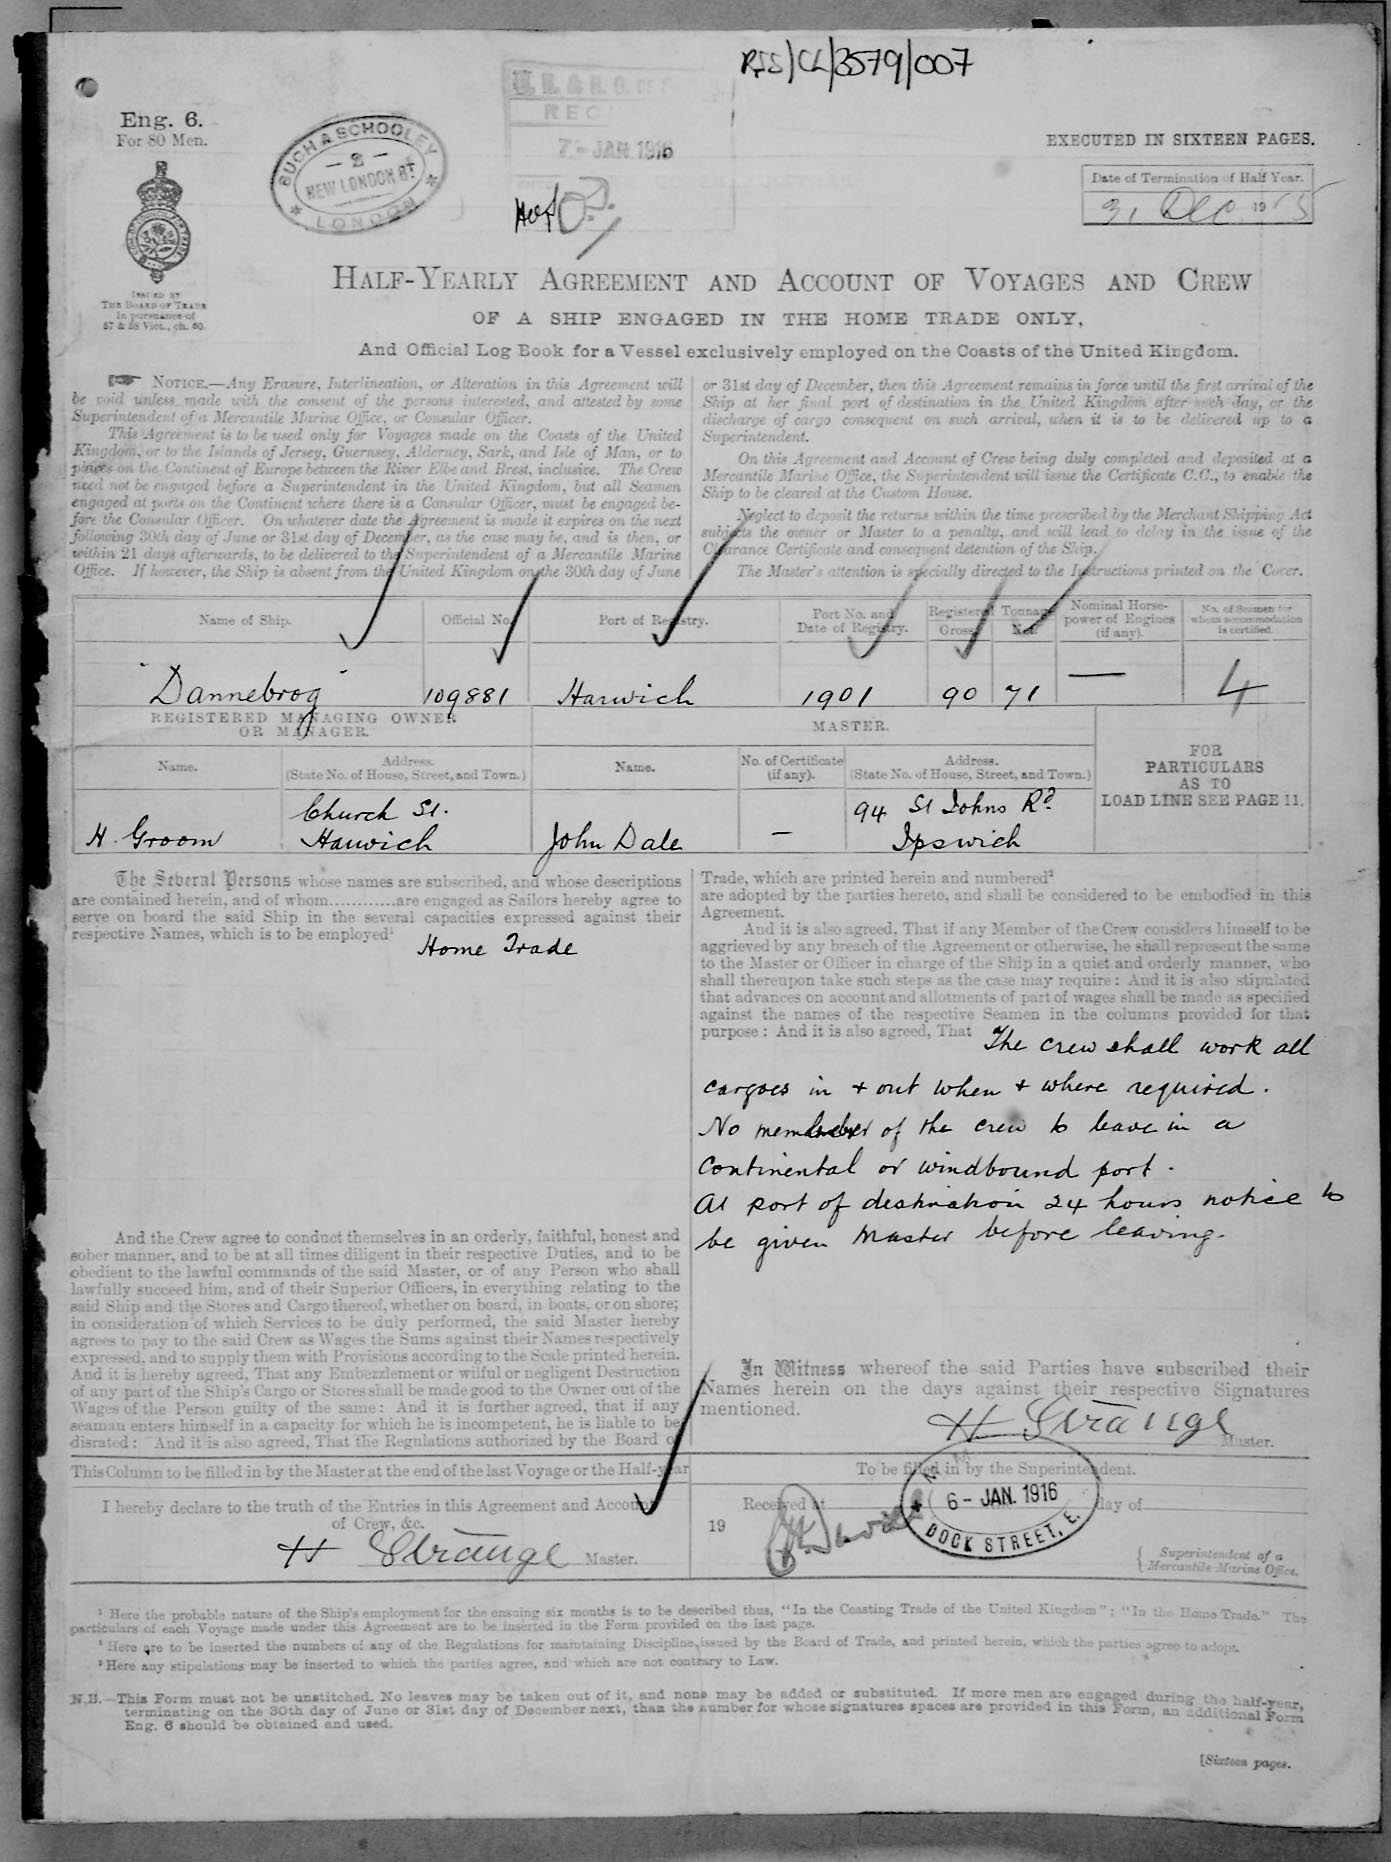 RSS/CL/3579/007
Eng. 6.
For 80 Men.
BUCH & SCHOOLEY
- 2 -
NEW LONDON ST
LONDON
REC
7 - JAN 1916
EXECUTED IN SIXTEEN PAGES.
Date of Termination of Half Year.
31 Dec 1915
ISSUED BY
THE BOARD OF TRADE
In pursuance of
57 & 58 Vict., ch. 60.
HALF-YEARLY AGREEMENT AND ACCOUNT OF VOYAGES AND CREW
OF A SHIP ENGAGED IN THE HOME TRADE ONLY,
And Official Log Book for a Vessel exclusively employed on the Coasts of the United Kingdom.
NOTICE.—Any Erasure, Interlineation, or Alteration in this Agreement will
be void unless made with the consent of the persons interested, and attested by some
Superintendent of a Mercantile Marine Office, or Consular Officer.
This Agreement is to be used only for Voyages made on the Coasts of the United
Kingdom, or to the Islands of Jersey, Guernsey, Alderney, Sark, and Isle of Man, or to
places on the Continent of Europe between the River Elbe and Brest, inclusive. The Crew
need not be engaged before a Superintendent in the United Kingdom, but all Seamen
engaged at ports on the Continent where there is a Consular Officer, must be engaged be-
fore the Consular Officer. On whatever date the Agreement is made it expires on the next
following 30th day of June or 31st day of December, as the case may be, and is then, or
within 21 days afterwards, to be delivered to the Superintendent of a Mercantile Marine
Office. If however, the Ship is absent from the United Kingdom on the 30th day of June
or 31st day of December, then this Agreement remains in force until the first arrival of the
Ship at her final port of destination in the United Kingdom after such day, or the
discharge of cargo consequent on such arrival, when it is to be delivered up to a
Superintendent.
On this Agreement and Account of Crew being duly completed and deposited at a
Mercantile Marine Office, the Superintendent will issue the Certificate C.C., to enable the
Ship to be cleared at the Custom House.
Neglect to deposit the returns within the time prescribed by the Merchant Shipping Act
subjects the owner or Master to a penalty, and will lead to delay in the issue of the
Clearance Certificate and consequent detention of the Ship.
The Master's attention is specially directed to the Instructions printed on the Cover.
Name of Ship.
Official No.
Port of Registry.
Port No. and
Date of Registry.
Registered Tonnage
Gross.
Net.
Nominal Horse-
power of Engines
(if any).
No. of Seamen for
whom accommodation
is certified.
"Dannebrog" 109881 Harwich 1901 90 71 — 4
REGISTERED MANAGING OWNER
OR MANAGER.
MASTER.
Name.
Address.
(State No. of House, Street, and Town.)
Name.
No. of Certificate
(if any).
Address.
(State No. of House, Street, and Town.)
FOR
PARTICULARS
AS TO
LOAD LINE SEE PAGE 11.
H. Groom
Church St.
Harwich
John Dale
—
94 St Johns Rd.
Ipswich
The Several Persons whose names are subscribed, and whose descriptions
are contained herein, and of whom............are engaged as Sailors hereby agree to
serve on board the said Ship in the several capacities expressed against their
respective Names, which is to be employed¹
Home Trade
And the Crew agree to conduct themselves in an orderly, faithful, honest and
sober manner, and to be at all times diligent in their respective Duties, and to be
obedient to the lawful commands of the said Master, or of any Person who shall
lawfully succeed him, and of their Superior Officers, in everything relating to the
said Ship and the Stores and Cargo thereof, whether on board, in boats, or on shore;
in consideration of which Services to be duly performed, the said Master hereby
agrees to pay to the said Crew as Wages the Sums against their Names respectively
expressed, and to supply them with Provisions according to the Scale printed herein.
And it is hereby agreed, That any Embezzlement or wilful or negligent Destruction
of any part of the Ship's Cargo or Stores shall be made good to the Owner out of the
Wages of the Person guilty of the same: And it is further agreed, that if any
seaman enters himself in a capacity for which he is incompetent, he is liable to be
disrated: And it is also agreed, That the Regulations authorized by the Board of
Trade, which are printed herein and numbered²
are adopted by the parties hereto, and shall be considered to be embodied in this
Agreement.
And it is also agreed, That if any Member of the Crew considers himself to be
aggrieved by any breach of the Agreement or otherwise, he shall represent the same
to the Master or Officer in charge of the Ship in a quiet and orderly manner, who
shall thereupon take such steps as the case may require: And it is also stipulated
that advances on account and allotments of part of wages shall be made as specified
against the names of the respective Seamen in the columns provided for that
purpose: And it is also agreed, That The crew shall work all
cargoes in + out when + where required.
No member of the crew to leave in a
Continental or windbound port.
At port of destination 24 hours notice to
be given Master before leaving.
In Witness whereof the said Parties have subscribed their
Names herein on the days against their respective Signatures
mentioned.
H Strange
Master.
This Column to be filled in by the Master at the end of the last Voyage or the Half-year
I hereby declare to the truth of the Entries in this Agreement and Account
of Crew, &c.
H Strange Master.
To be filled in by the Superintendent.
Received at
day of
19
M M
6 - JAN. 1916
DOCK STREET, E.
Superintendent of a
Mercantile Marine Office.
¹ Here the probable nature of the Ship's employment for the ensuing six months is to be described thus, "In the Coasting Trade of the United Kingdom"; "In the Home Trade." The
particulars of each Voyage made under this Agreement are to be inserted in the Form provided on the last page.
² Here are to be inserted the numbers of any of the Regulations for maintaining Discipline, issued by the Board of Trade, and printed herein, which the parties agree to adopt.
³ Here any stipulations may be inserted to which the parties agree, and which are not contrary to Law.
N.B.—This Form must not be unstitched. No leaves may be taken out of it, and none may be added or substituted. If more men are engaged during the half-year,
terminating on the 30th day of June or 31st day of December next, than the number for whose signatures spaces are provided in this Form, an additional Form
Eng. 6 should be obtained and used.
[Sixteen pages.